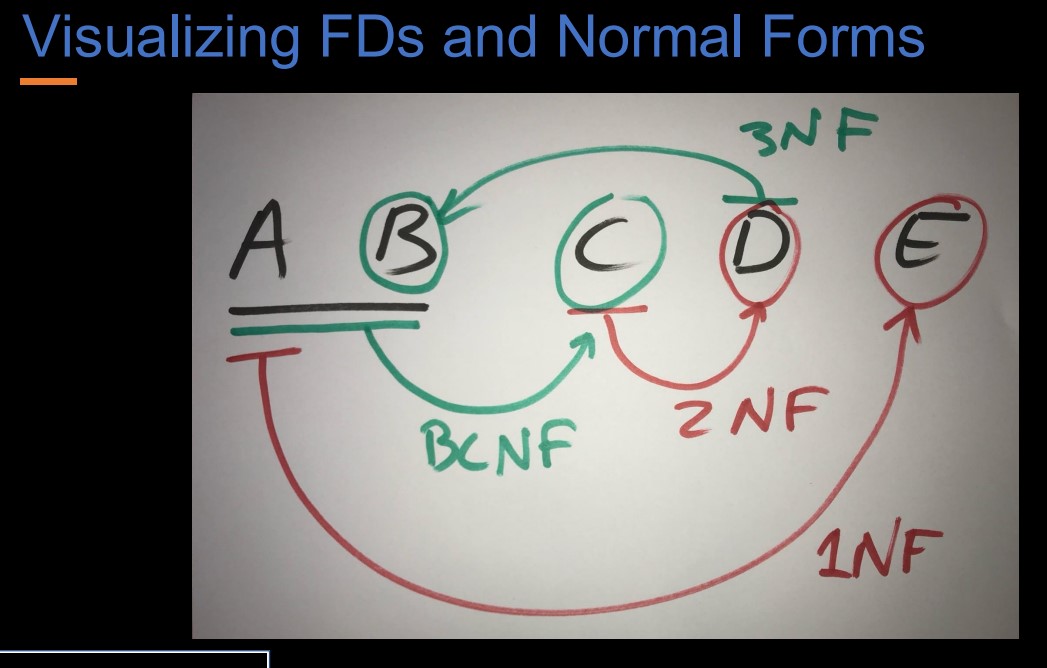 Visualizing FDs and Normal Forms
3NF
A B C D E
BCNF
2NF
1NF